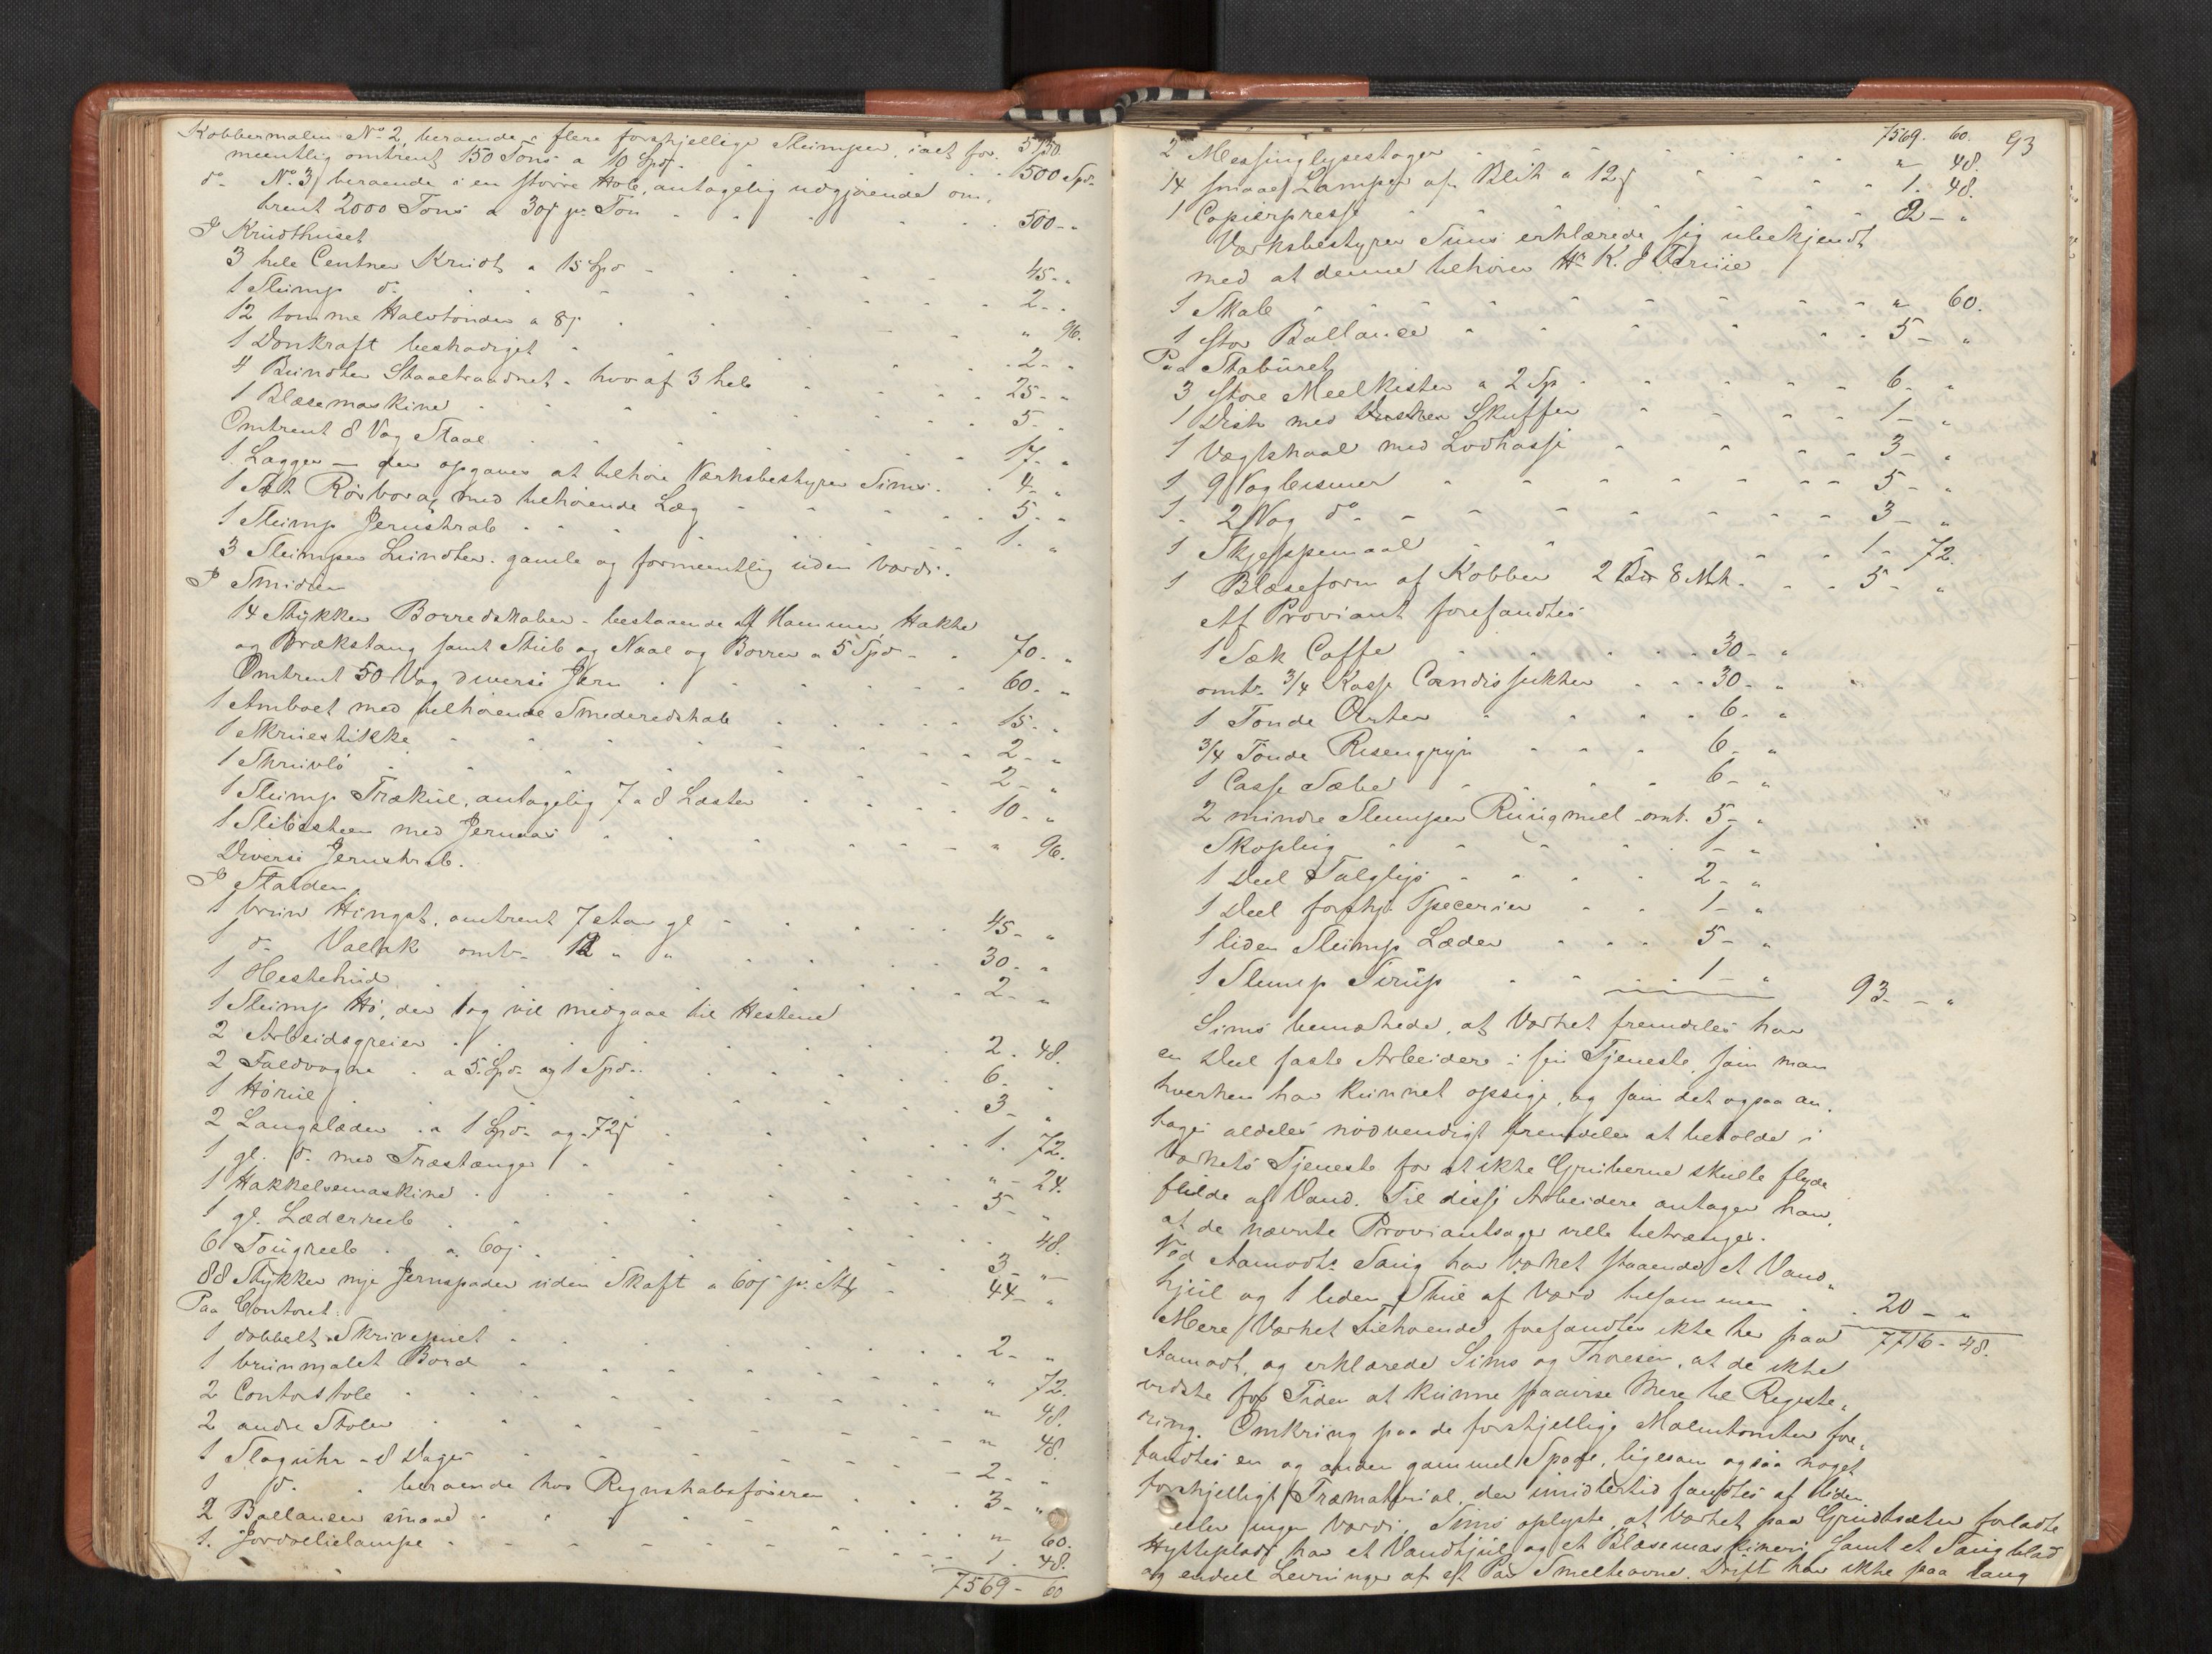 Kobbermalm No 2, beroende i flere forskjellige Slumper, ialt for- 5130.
meentlig omtrent 150 Tons a 10 Spd. 1500 Spd.
do No 3, beroende i en större Hob, antagelig udgjörende om-
trent 2000 Tons a 30 s pr. Ton 500 - "
I Krudthuset
3 hele Centner Krudt a 15 Spd 45 - "
1 Slump do 2 - "
12 tomme Halvtönder a 8 s " 96.
1 Donkraft beskadiget 2 - "
4 Bundter Staaltraadnet - hvoraf 3 hele 25 - "
1 Blæsemaskine 5 - "
Omtrent 8 Vog Staal 17 - "
1 Lagger — der opgaves at tilhöre Værksbestyrer Sims 4 - "
1 Sæt Rörborag med tilhörende Læg 5 - "
1 Slump Jernskrab 1 - "
3 Slumper Lundter - gamle og formeentlig uden Værdi.
I Smidien
14 Stykker Borredskaber - bestaaende af Hammer, Hakke
og Brækstang samt Stub og Naal og Borrer a 5 Spd 70 - "
Omtrent 50 Vog diverse Jern 60 - "
1 Ambolt med tilhörende Smederedskab 15 - "
1 Skruestikke 2 - "
1 Skruvlö 2 - "
1 Slump Trækul, antagelig 7 a 8 Læster 10 - "
1 Slibesteen med Jernaas " 96.
Diverse Jernskrab.
I Stalden
1 brun Hingst, omtrent 7 Aar gl 45 - "
1 do Vallak omtr. 12 " " 30 - "
1 Hestehud 2 - "
1 Slump Hö, der dog vil medgaae til Hestene
2 Arbeidsgreier 2 - 48.
2 Faldvogne a 5 Spd. og 1 Spd. 6 - "
1 Hörive 3 - "
2 Langslæder a 1 Spd. og 72 s 1 - 72.
1 gl. do med Træstænger " - 24.
1 Hakkelsemaskine 5 - "
1 gl. Læderreeb " 48.
6 Tougreeb a 60 s 3 - "
88 Stykker nye Jernspader uden Skaft a 60 s pr. Stk 44 - "
Paa Contoret.
1 dobbelt Skrivepult 2 - "
1 brunmalet Bord " 72.
2 Contorstole " 48.
2 andre Stole " 48.
1 Slaguhr - 8 Dages 2 - "
1 do beroende hos Regnskabsföreren 3 - "
2 Ballancer smaae " 60.
1. Jordoelielampe 1 - 48.
7569 - 60
7569 - 60. 93
2 Messinglysestager " 48.
14 smaae Lamper af Blik a 12 s 1 - 48.
1 Copierpresse 2 - "
Værksbestyrer Sims erklærede sig ubekjendt
med at denne tilhörer Hr. K. J.
1 Skab " 60.
1 stor Ballance 5 - "
Paa Staburet
3 store Meelkister a 2 Sp 6 - "
1 Disk med Skuffer 1 - "
1 Vægtskaal med Lodkasse 3 - "
1 9 Vog Bismer 5 - "
1 2 Vog do 3 - "
1 Skjeppemaal 1 - 72.
1 Blæseform af Kobber 2 8 Mk. 5 - "
Af Proviant forefandtes
1 Sæk Caffe 30 - "
omtr. 3/4 Kasse Candissukker 30 - "
1 Tönde Ærter 6 - "
3/4 Tönde Risengryn 6 - "
1 Casse Sæbe 6 - "
2 mindre Slumper Rugmeel omt. 5 - "
Skoplug 1 - "
1 Deel Talglys 2 - "
1 Deel forskj. Specerier 1 - "
1 liden Slump Læder 5 - "
1 Slump Sirup 1 - " 93 - "
Sims bemærkede, at Værket fremdeles har
en Deel faste Arbeidere i sin Tjeneste, som man
hverken har kunnet opsige, og som det ogsaa an-
tages aldeles nödvendigt fremdeles at beholde i
Værkets Tjeneste for at ikke Gruberne skulle flyde
fulde af Vand. Til disse Arbeidere antager han,
at de nævnte Proviantsager ville betrænges.
Ved Aamodts Saug har Værket staaende et Vand-
hjul og 1 liden Stue af Værd tilsammen 20 - "
Mere Værket tilhörende forefandtes ikke her paa 7716 - 48.
Aamodt, og erklærede Sims og Thoesen, at de ikke
vidste for Tiden at kunne paavise Mere til Registe-
ring. Omkring paa de forskjellige Malmtomter fore-
fandtes en og anden gammel Spade, ligesom ogsaa noget
forskjelligt Træmaterial, der imidlertid fandtes af liden
eller ingen Værdi. Sims oplyste, at Værket paa Grudtsæter forladte
Hytteplads har et Vandhjul og et Blæsemaskineri samt et Saugblad
og endeel Levninger af et Par Smelteovne. Drift har ikke paa lang